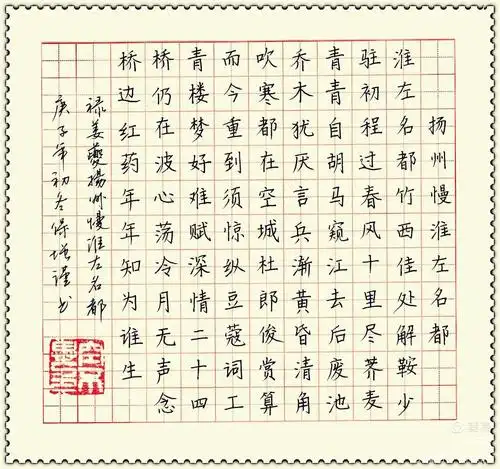 扬州慢淮左名都
淮左名都竹西佳处解鞍少
驻初程过春风十里尽荠麦
青青自胡马窥江去后废池
乔木犹厌言兵渐黄昏清角
吹寒都在空城杜郎俊赏算
而今重到须惊纵豆蔻词工
青楼梦好难赋深情二十四
桥仍在波心荡冷月无声念
桥边红药年年知为谁生
禄姜夔揚州慢淮左名都
庚子年初冬保增谨书